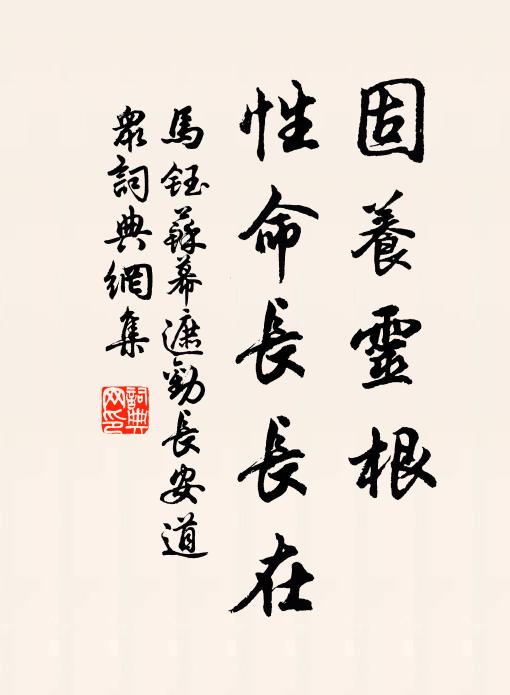 固養靈根
性命長長在
馬鈺蘇幕遮勸長安道
眾詞典網集
詞典网印